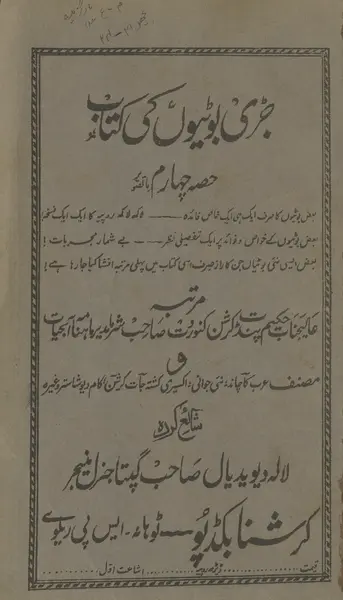 جڑی بوٹیوں کی کتاب
حصہ چہارم باتصویر
بعض بوٹیوں کا صرف ایک ہی ایک خاص فائدہ ــــ لاکھ لاکھ روپیہ کا ایک ایک نسخہ
بعض بوٹیوں کے خواص و فوائد پر ایک تفصیلی نظر ــــ بے شمار مجربات !
بعض ایسی نئی بوٹیاں جن کا راز صرف اسی کتاب میں پہلی مرتبہ افشا کیا جا رہا ہے !
مرتبہ
عالیجناب حکیم پنڈت کرشن کنوردت صاحب شرما مدیر ماہنامہ آبحیات
و
مصنف عرب کا چاند، نئی جوانی، اکسیری کشتہ جات کرشن کام دیو شاستر وغیرہ
شائع کردہ
لالہ دیویدیال صاحب گپتا جنرل منیجر
کرشنا بکڈپو ــــ ٹوہانہ ــ ایس پی ریلوے
قیمت ...... روپیہ ...... اشاعت اول ......